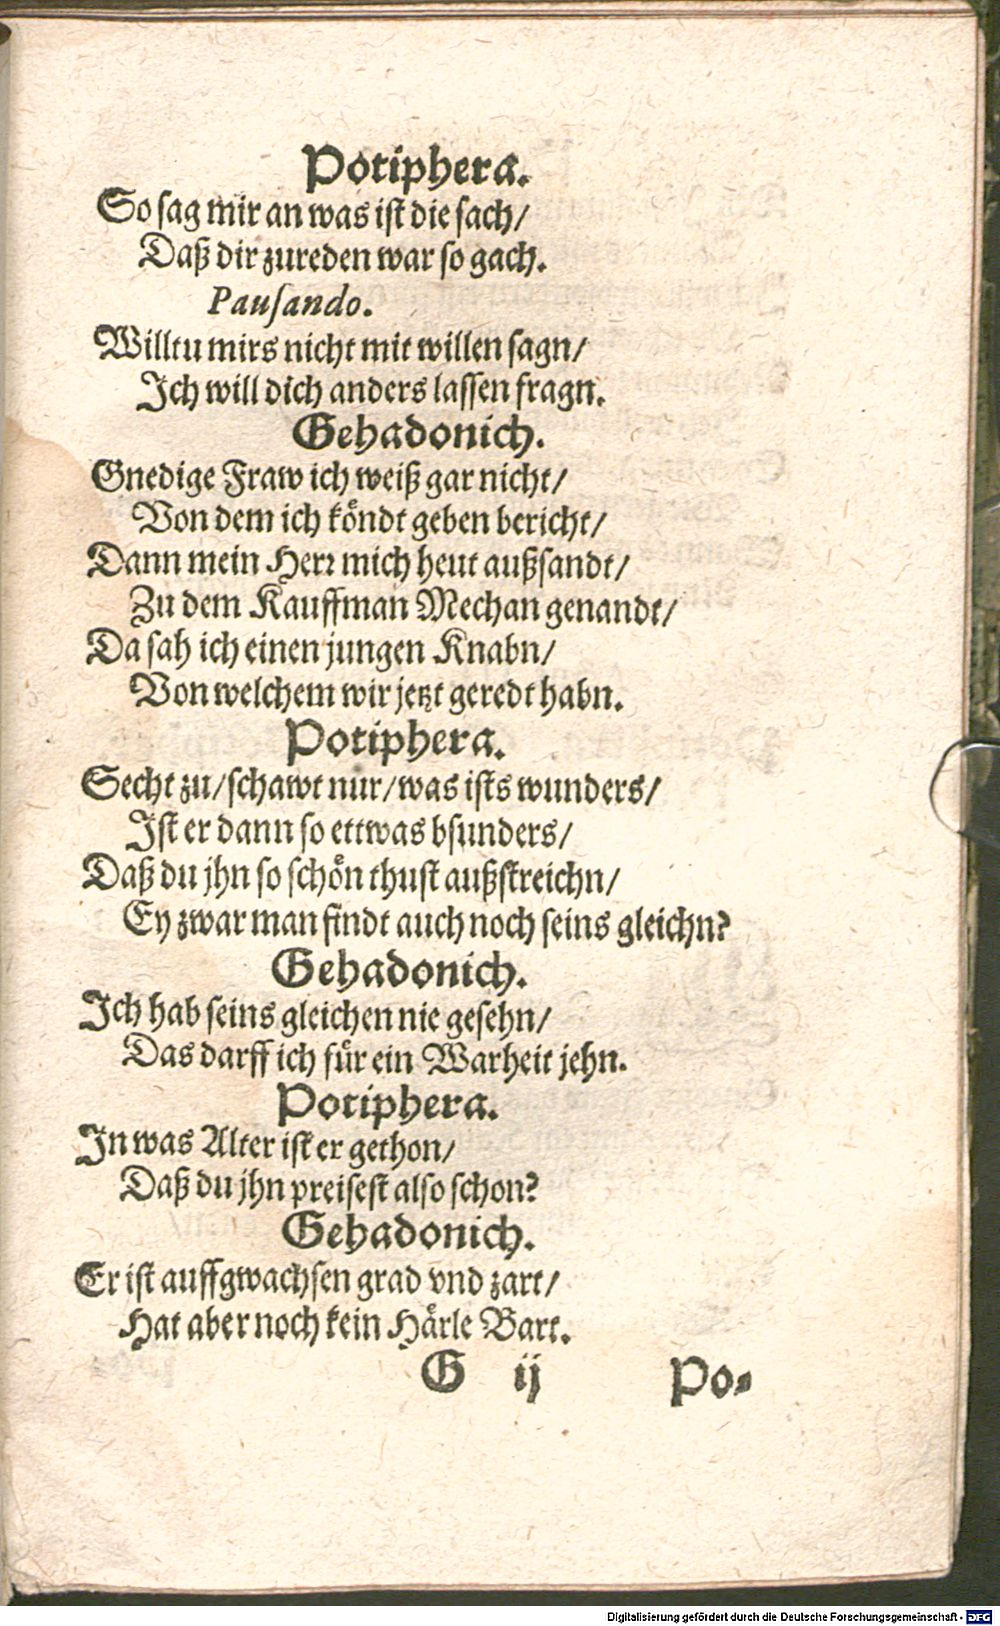 Potiphera.
So sag mir an was ist die sach/
Daß dir zureden war so gach.
Pausando.
Willtu mirs nicht mit willen sagn/
Ich will dich anders lassen fragn.
Gehadonich.
Gnedige Fraw ich weiß gar nicht/
Von dem ich köndt geben bericht/
Dann mein Herr mich heut außsandt/
Zu dem Kauffman Mechan genandt/
Da sah ich einen jungen Knabn/
Von welchem wir jetzt geredt habn.
Potiphera.
Secht zu/schawt nur/was ists wunders/
Ist er dann so ettwas bsunders/
Daß du jhn so schön thust außstreichn/
Ey zwar man findt auch noch seins gleichn?
Gehadonich.
Ich hab seins gleichen nie gesehn/
Das darff ich für ein Warheit jehn.
Potiphera.
In was Alter ist er gethon/
Daß du jhn preisest also schon?
Gehadonich.
Er ist auffgwachsen grad vnd zart/
Hat aber noch kein Härle Bart.
G ij Po-
Digitalisierung gefördert durch die Deutsche Forschungsgemeinschaft - DFG